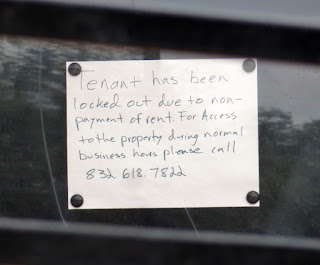 Tenant has been
locked out due to non-
payment of rent. For Access
to the property during normal
business hours please call
832 618.7822